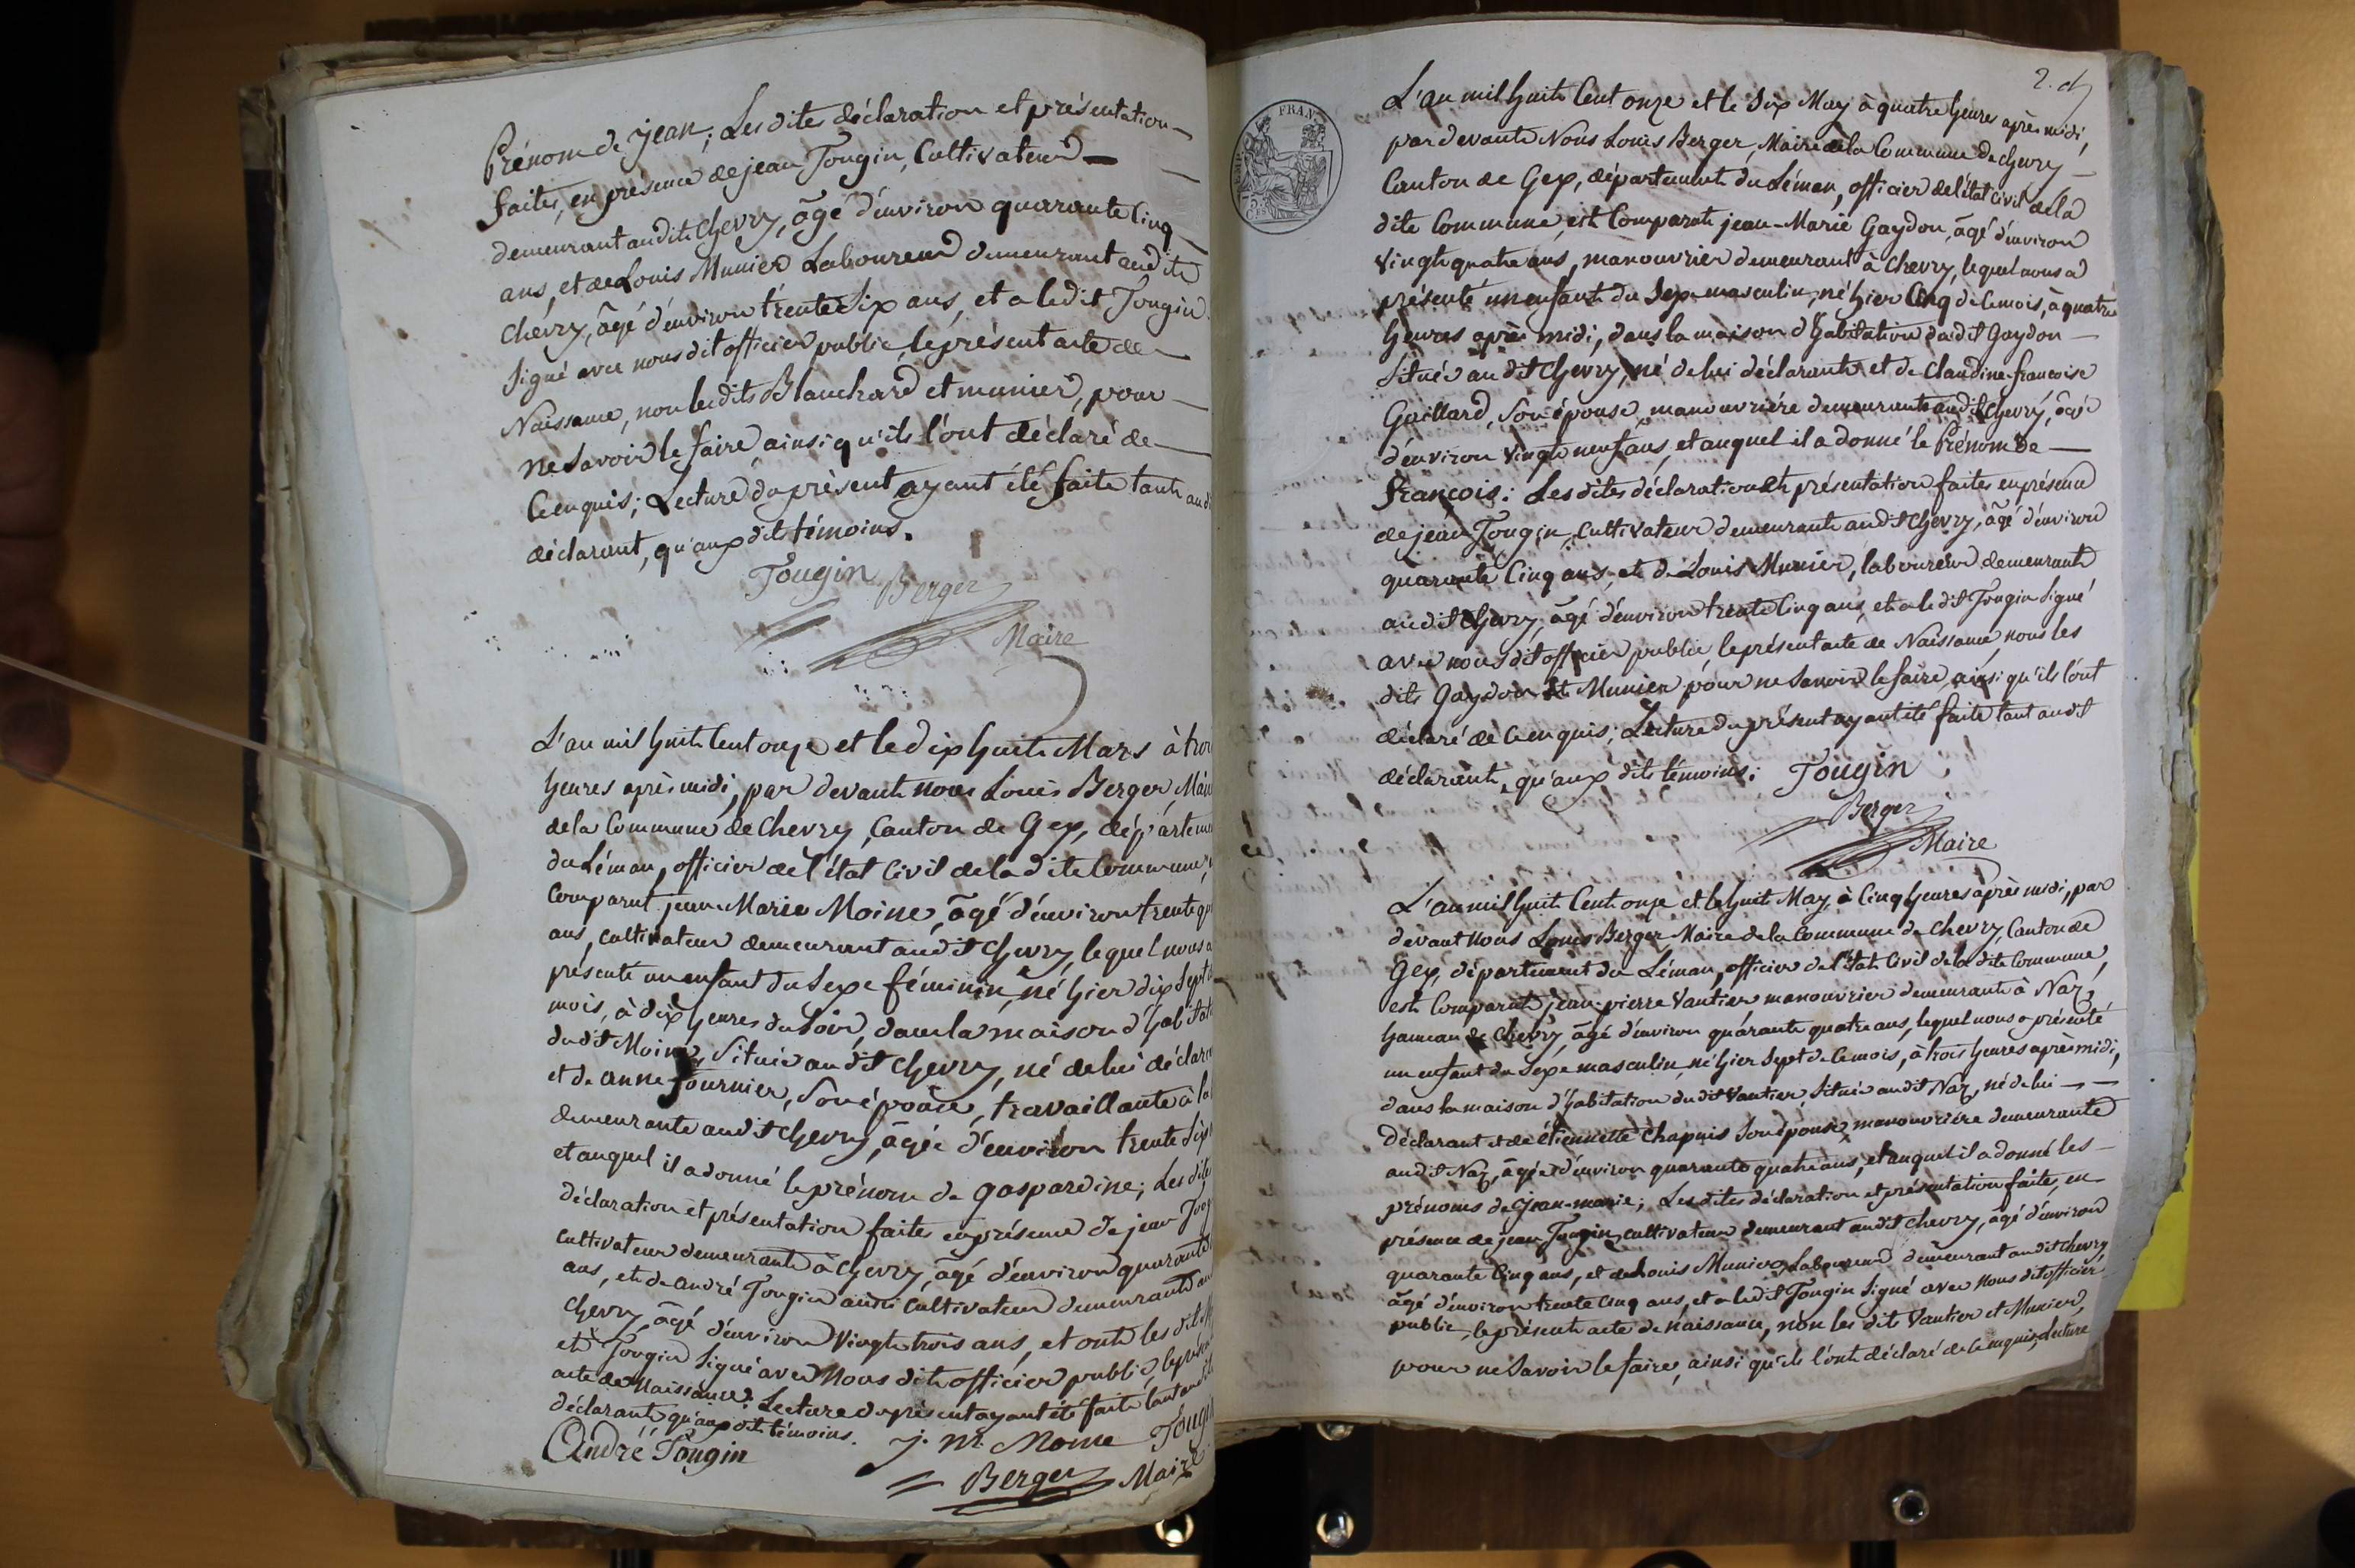 Prénom de jean; Les dites déclaration et présentation
faites, en présence de jean Tougin, Cultivateur
demeurant audit Chevry, âgé d'environ quarante Cinq
ans, et de Louis Munier Laboureur demeurant audit
Chevry, âgé d'environ trente Six ans, et a le dit Tougin
Signé avec nous dit officier public, le présent acte de
Naissance, non les dits Blanchard et munier, pour
ne Savoir le faire, ainsi qu'ils l'ont déclaré de
Ce enquis; Lecture du présent ayant été faite tant au
déclarant, qu'aux dits témoins.
Tougin Berger
Maire
L'an mil huit Cent onze et le dix huit Mars à
heures après midi, par devant nous Louis Berger,
de la Commune de Chevry, Canton de Gex,
du Léman, officier de l'état Civil de la dite Commune,
Comparut jean Marie Moine, âgé d'environ trente
ans, cultivateur demeurant audit Chevry, lequel nous a
présenté un enfant du Sexe féminin, né hier dix Sept
mois, à dix heures du Soir, dans la maison
dudit Moine, Située audit Chevry, né de lui
et de anne fournier, Son épouse, travaillante à la
demeurante audit Chevry, âgée d'environ trente Six
et auquel il a donné le prénom de gaspardine; Les dites
déclaration et présentation faites en présence de jean
Cultivateur demeurant à Chevry, âgé d'environ quarante
ans, et de andré Tougin aussi Cultivateur demeurant
Chevry, âgé d'environ Vingt trois ans, et ont les dits
et Tougin Signé avec Nous dit officier public,
acte de Naissance. Lecture du présent ayant été faite tant
déclarant, qu'aux dits témoins.
André Tougin j. m. Moine
Berger Maire
2. d
FRAN
75
L'an mil huit Cent onze et le Six May à quatre heures après midi,
par devant Nous Louis Berger, Maire de la Commune de Chevry
Canton de Gex, département du Léman, officier de l'état Civil de la
dite Commune, est Comparut jean-Marie Gaydon, âgé d'environ
Vingt quatre ans, manouvrier demeurant à Chevry, lequel nous a
présenté un enfant du Sexe masculin, né hier Cinq de Ce mois, à quatre
heures après midi, dans la maison d'habitation dudit Gaydon
Située audit Chevry, né de lui déclarant et de Claudine francoise
Gaillard, Son épouse, manouvriére demeurante audit Chevry, âgé
d'environ Vingt neuf ans, et auquel il a donné le Prénom de
françois: Les dites déclaration et présentation faites en présence
de jean Tougin, Cultivateur demeurant audit Chevry, âgé d'environ
quarante Cinq ans, et de Louis Munier, laboureur demeurant
audit Chevry, âgé d'environ trente Cinq ans, et a le dit Tougin Signé
avec nous dit officier public, le présent acte de Naissance, nous les
dits Gaydon et Munier pour ne Savoir le faire, ainsi qu'ils l'ont
déclaré de Ce enquis; Lecture du présent ayant été faite tant audit
déclarant, qu'aux dits témoins; Tougin
Berger
Maire
L'an mil huit Cent onze et le huit May, à Cinq heures après midi, par
devant Nous Louis Berger, Maire de la Commune de Chevry, Canton de
Gex, département du Léman, officier de l'état Civil de la dite Commune,
est Comparut jean-pierre Vantier manouvrier demeurant à Naz,
hameau de Chevry, âgé d'environ quarante quatre ans, lequel nous a présenté
un enfant du Sexe masculin, né hier Sept de Ce mois, à trois heures après midi,
dans la maison d'habitation dudit Vantier, Située audit Naz, né de lui
Déclarant et de étiennette Chapuis Son épouse, manouvriére demeurante
audit Naz, âgée d'environ quarante quatre ans, et auquel il a donné les
prénoms de jean-marie; Les dites déclaration et présentation faites, en
présence de jean Tougin, cultivateur demeurant audit Chevry, âgé d'environ
quarante Cinq ans, et de Louis Munier, Laboureur demeurant audit Chevry
âgé d'environ trente Cinq ans, et a le dit Tougin Signé avec Nous dit officier
public, le présent acte de naissance, non les dits Vantier et Munier,
pour ne Savoir le faire, ainsi qu'ils l'ont déclaré de Ce enquis; Lecture